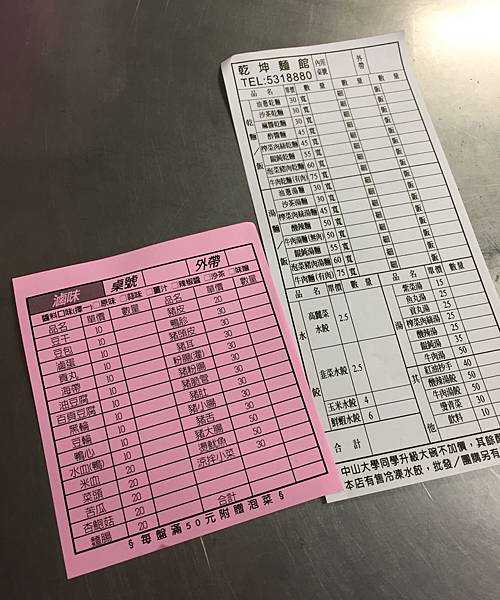 乾坤麵館 內用桌號 外帶
TEL:5318880
品名 單價 數量 數量 數量
乾麵
油蔥乾麵 30 寬 細 飯
沙茶乾麵 30 寬 細 飯
麻醬乾麵 30 寬 細 飯
酢醬麵 45 寬 細 飯
榨菜肉絲乾麵 45 寬 細 飯
餛飩乾麵 55 寬 細 飯
泡菜豬肉乾麵 60 寬 細 飯
牛肉乾麵(有肉) 75 寬 細 飯
湯麵
油蔥湯麵 30 寬 細 飯
沙茶湯麵 30 寬 細 飯
榨菜肉絲湯麵 45 寬 細 飯
酸辣麵 50 寬 細 飯
牛肉湯麵(無肉) 50 寬 細 飯
餛飩湯麵 55 寬 細 飯
泡菜豬肉湯麵 60 寬 細 飯
牛肉麵(有肉) 75 寬 細 飯
品名 單價 數量 品名 單價 數量
水餃
高麗菜水餃 2.5
韭菜水餃 2.5
玉米水餃 4
鮮蝦水餃 6
合計
湯
紫菜湯 15
魚丸湯 25
貢丸湯 25
榨菜肉絲湯 25
酸辣湯 35
餛飩湯 35
牛肉湯 50
其他
紅油抄手 40
酸辣湯餃 50
牛肉湯餃 50
燙青菜 30
飲料 10
中山大學同學升級大碗不加價，其餘
本店有售冷凍水餃，批發/團購另有
滷味 桌號 外帶
醬料口味(擇一) □原味 □蒜味 □薑汁 □辣椒醬 □沙茶 □味噌
品名 單價 數量 品名 單價 數量
豆干 10 豬皮 20
豆包 10 鴨胗 30
滷蛋 10 豬頭皮 30
貢丸 10 豬耳 30
海帶 10 粉腸(灌) 30
油豆腐 10 豬粉腸 30
百頁豆腐 10 豬脆管 30
黑輪 10 豬肚 30
豆輪 10 豬小腸 30
鴨心 10 豬舌 50
水血(鴨) 20 豬大腸 50
米血 20 燙魷魚 50
菜頭 20 涼拌小菜 30
苦瓜 20
杏鮑菇 20
麵腸 20 合計
§每盤滿50元附贈泡菜§